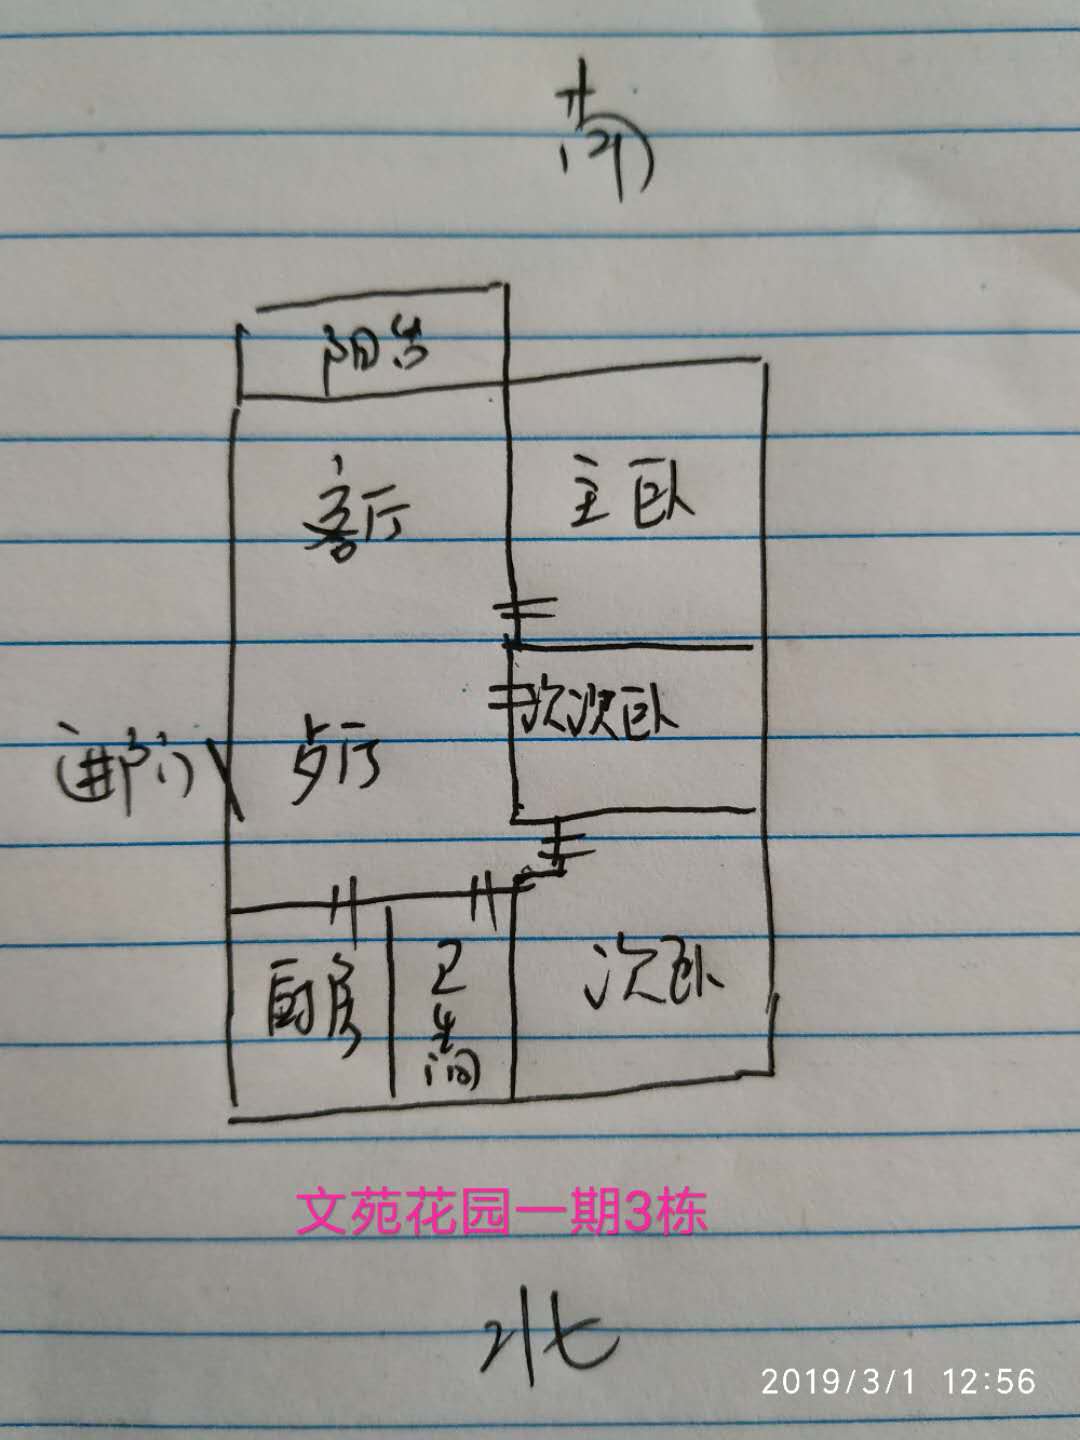 南
阳台
客厅
主卧
次次卧
进门
歺厅
厨房
卫生间
次卧
文苑花园一期3栋
北
2019/3/1 12:56